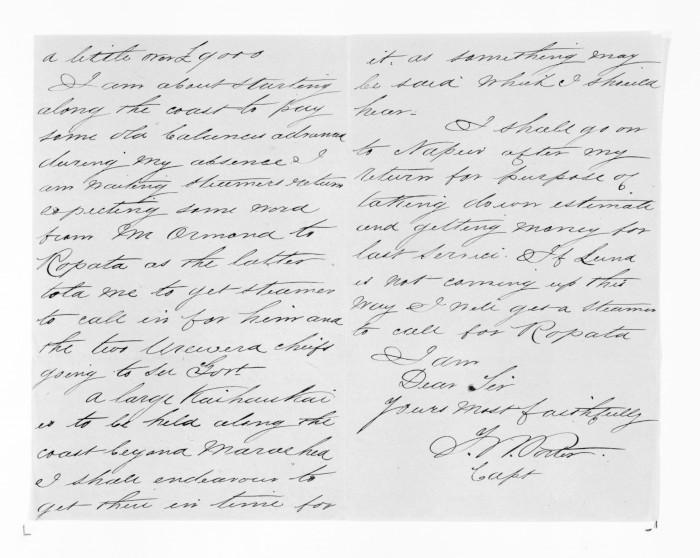 a little over £9000
I am about starting
along the coast to pay
some old balances advanced
during my absence & I
am waiting steamers return
expecting some word
from Mr Ormond to
Ropata as the latter
told me to get steamer
to call in for him and
the two Urewera chiefs
going to see Govt
a large Kaihaukai
is to be held along the
coast beyond
I shall endeavour to
get there in time for
it. as something may
be said which I should
hear.
I shall go on
to Napier after my
return for purpose of
taking down estimate
and getting money for
last service. & If Luna
is not coming up this
way I will get a steamer
to call for Ropata
I am
Dear Sir
Yours most faithfully
T. W. Porter.
Capt